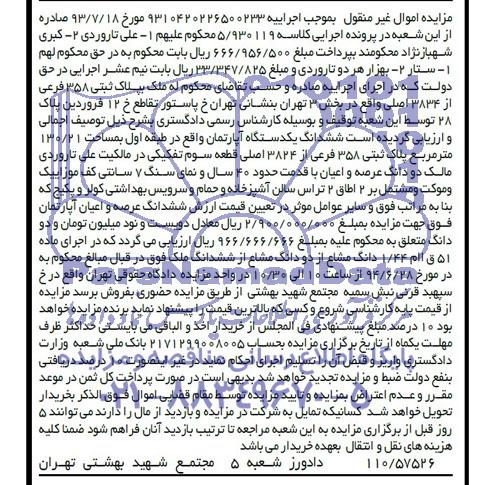 مزایده اموال غیر منقول بموجب اجراییه ۹۳۱۰۴۲۰۲۲۶۵۰۰۲۳۳ مورخ ۹۳/۷/۱۸ صادره
از این شعبه در پرونده اجرایی کلاسه ۵/۹۳۰۱۱۹ محکوم علیهم ۱- علی تاروردی ۲- کبری
شهبازنژاد محکومند بپرداخت مبلغ ۶۶۶/۹۵۶/۵۰۰ ریال بابت محکوم به در حق محکوم لهم
۱- ستار ۲- بهزار هر دو تاروردی و مبلغ ۳۳/۳۴۷/۸۲۵ ریال بابت نیم عشر اجرایی در حق
دولت که در اجرای اجراییه صادره و حسب تقاضای محکوم له ملک بپلاک ثبتی ۳۵۸ فرعی
از ۳۸۳۴ اصلی واقع در بخش ۳ تهران بنشانی تهران خ پاستور تقاطع خ ۱۲ فروردین پلاک
۲۸ توسط این شعبه توقیف و بوسیله کارشناس رسمی دادگستری بشرح ذیل توصیف اجمالی
و ارزیابی گردیده است ششدانگ یکدستگاه آپارتمان واقع در طبقه اول بمساحت ۱۳۰/۲۱
مترمربع پلاک ثبتی ۳۵۸ فرعی از ۳۸۲۴ اصلی قطعه سوم تفکیکی در مالکیت علی تاروردی
مالک دو دانگ عرصه و اعیان با قدمت حدود ۴۰ سال و نمای سنگ ۷ سانتی کف موزاییک
وموکت ومشتمل بر ۲ اطاق ۲ تراس سالن آشپزخانه و حمام وسرویس بهداشتی کولر و پکیج که
بنا به مراتب فوق و سایر عوامل موثر در تعیین قیمت ارزش ششدانگ عرصه و اعیان آپارتمان
فوق جهت مزایده بمبلغ ۲/۹۰۰/۰۰۰/۰۰۰ ریال معادل دویست و نود میلیون تومان و دو
دانگ متعلق به محکوم علیه بمبلغ ۹۶۶/۶۶۶/۶۶۶ ریال ارزیابی می گردد که در اجرای ماده
۵۱ ق اام ۱/۴۴ دانگ مشاع از دو دانگ مشاع از ششدانگ ملک فوق در قبال مبالغ محکوم به
در مورخ ۹۴/۶/۲۸ از ساعت ۱۰ الی ۱۰/۳۰ در واحد مزایده دادگاه حقوقی تهران واقع در خ
سپهبد قرنی نبش سمیه مجتمع شهید بهشتی از طریق مزایده حضوری بفروش برسد مزایده
از قیمت پایه کارشناسی شروع و کسی که بالاترین قیمت را پیشنهاد نماید برنده مزایده خواهد
بود ۱۰ در صد مبلغ پیشنهادی فی المجلس از خریدار اخذ و الباقی می بایستی حداکثر ظرف
مهلت یکماه از تاریخ برگزاری مزایده بحساب ۲۱۷۱۲۹۹۰۰۸۰۰۵ بانک ملی شعبه وزارت
دادگستری واریز و قبض آن را تسلیم اجرای احکام نماید در غیر اینصورت ۱۰ در صد دریافتی
بنفع دولت ضبط و مزایده تجدید خواهد شد بدیهی است در صورت پرداخت کل ثمن در موعد
مقرر و عدم اعتراض بمزایده و تایید مزایده توسط مقام قضایی اموال فوق الذکر بخریدار
تحویل خواهد شد کسانیکه تمایل به شرکت در مزایده و بازدید از مال را دارند می توانند ۵
روز قبل از برگزاری مزایده به این شعبه مراجعه تا ترتیب بازدید آنان فراهم شود ضمنا کلیه
هزینه های نقل و انتقال بعهده خریدار می باشد
۱۱۰/۵۷۵۲۶ دادورز شعبه ۵ مجتمع شهید بهشتی تهران